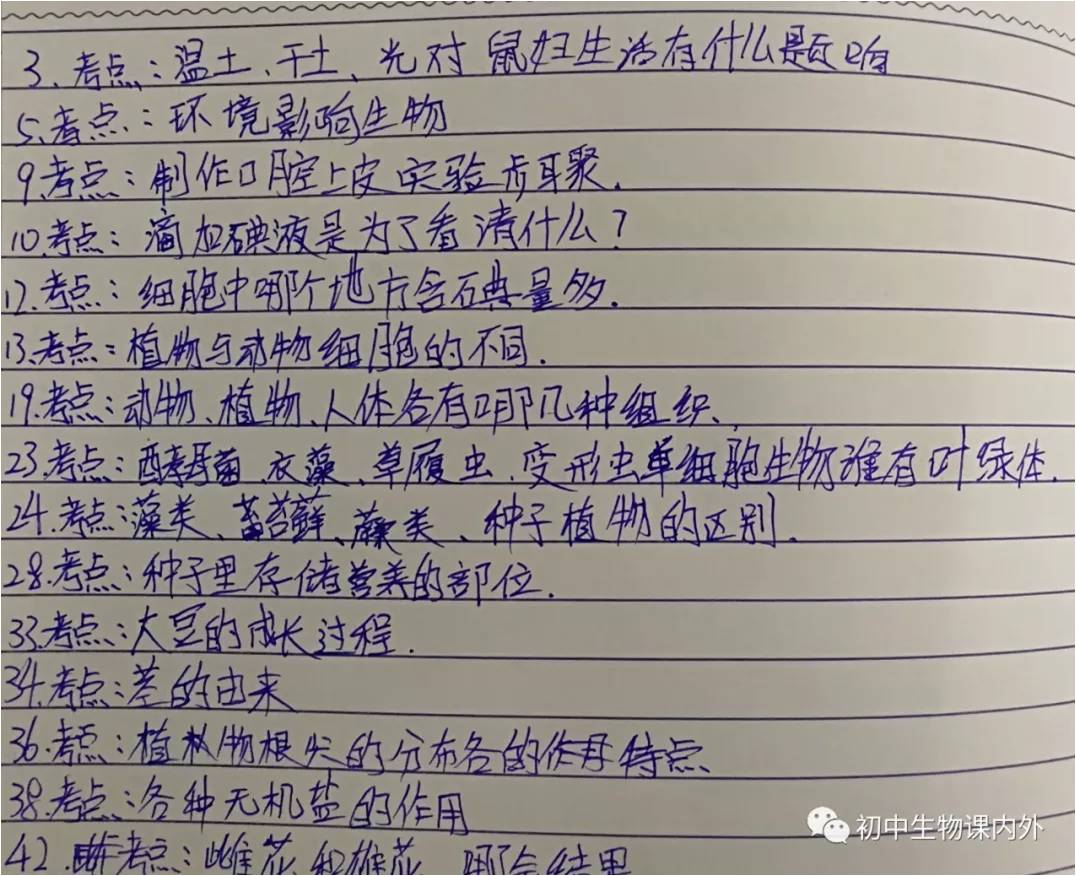 3.考点:温土、干土、光对鼠妇生活有什么影响
5.考点:环境影响生物
9.考点:制作口腔上皮实验步骤.
10.考点:滴加碘液是为了看清什么?
12.考点:细胞中哪个地方含碘量多.
13.考点:植物与动物细胞的不同.
19.考点:动物、植物、人体各有哪几种组织、
23.考点:酵母菌、衣藻、草履虫、变形虫单细胞生物谁有叶绿体.
24.考点:藻类、苔藓、蕨类、种子植物的区别.
28.考点:种子里存储营养的部位.
33.考点:大豆的成长过程.
34.考点:茎的由来
36.考点:植物根尖的分布各的作用特点、
38.考点:各种无机盐的作用
42.考点:雌花和雄花 哪会结果
初中生物课内外